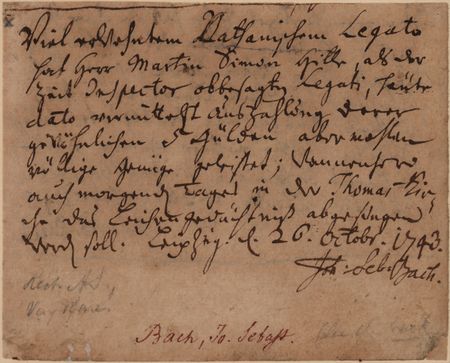 Viel erwehntem Nathanischem Legato
hat Herr Martin Simon Hille, als der
Zeit Inspector obbesagten Legati, heute
dato vermittelst Auszahlung derer
gewöhnlichen 5 Gülden abermahlen
völlige genüge geleistet; Wannenhero
auch morgendes Tages in der Thomas Kir,
che das Leichengedächtniß abgesungen
werden soll. Leipzig. d. 26. Octobr. 1743.
Joh: Seb: Bach.
Bach, Jo. Sebast.